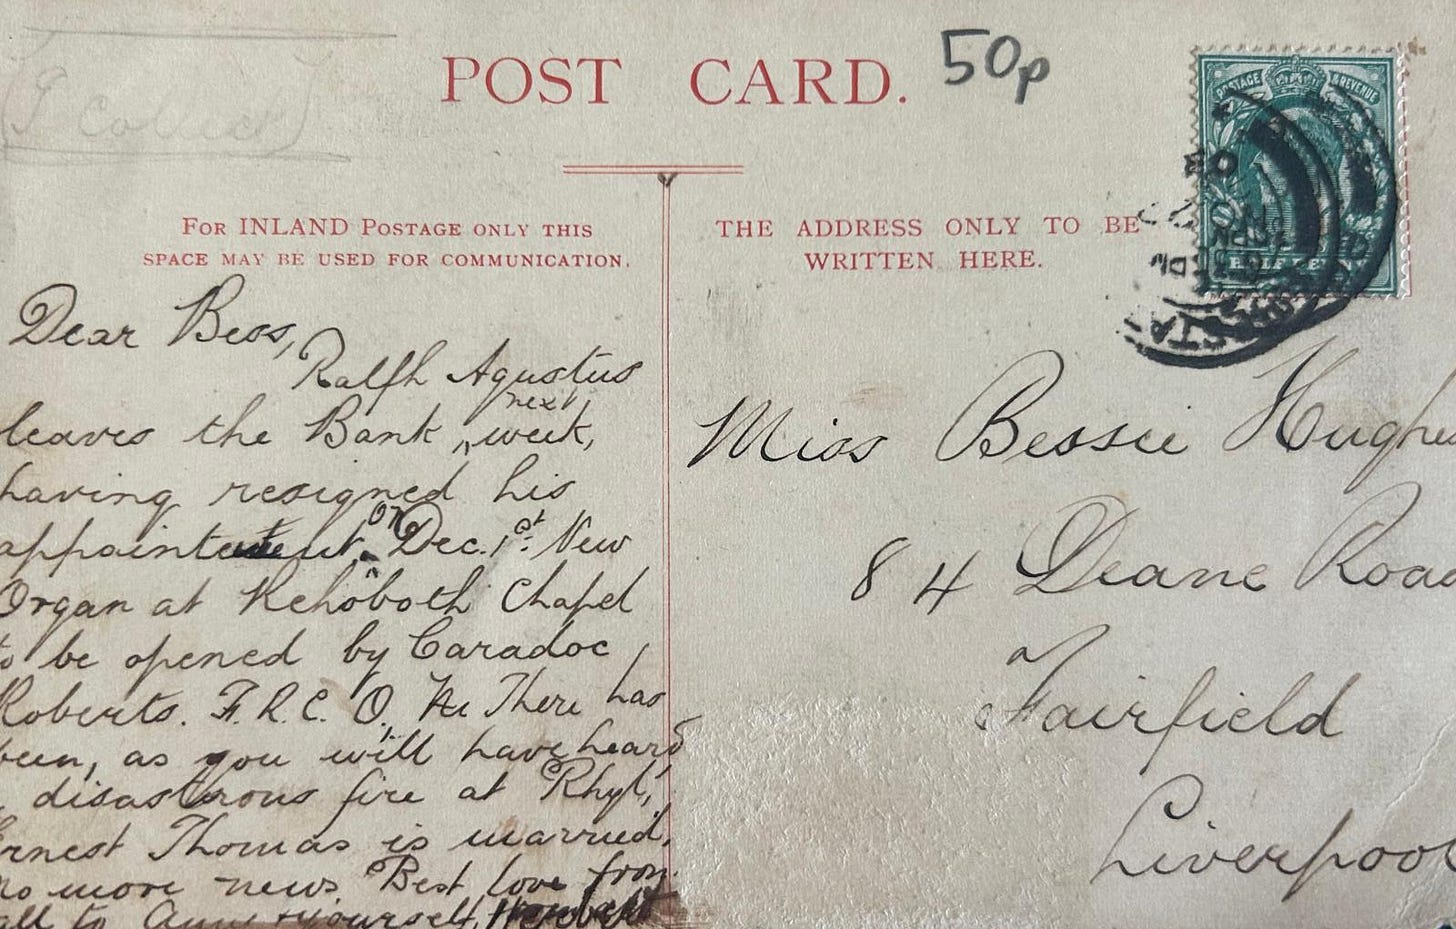 POST CARD.
50p
For INLAND Postage only this
space may be used for communication.
THE ADDRESS ONLY TO BE
WRITTEN HERE.
POSTAGE & REVENUE
HALF PENNY
03
Dear Bess,
Ralph Agustus
leaves the Bank next week,
having resigned his
appointment on Dec. 1st. New
Organ at Rehoboth Chapel
to be opened by Caradoc
Roberts. F.R.C.O. There has
been, as you will have heard
disastrous fire at Rhyl,
Ernest Thomas is married,
no more news. Best love from
all to Annie & yourself,
Miss Bessie Hughes
84 Deane Road
Fairfield
Liverpool